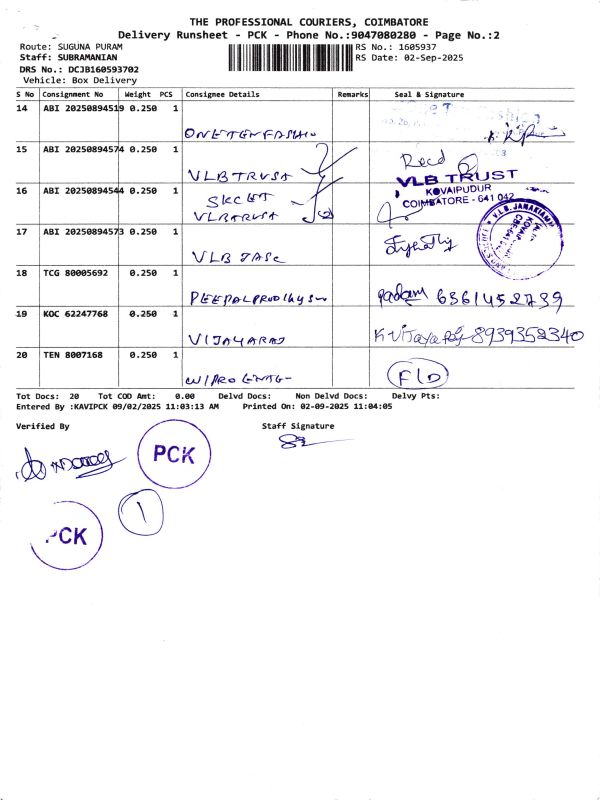 THE PROFESSIONAL COURIERS, COIMBATORE
Delivery Runsheet - PCK - Phone No.:9047080280 - Page No.:2
Route: SUGUNA PURAM RS No.: 1605937
Staff: SUBRAMANIAN RS Date: 02-Sep-2025
DRS No.: DCJB160593702
Vehicle: Box Delivery
S No Consignment No Weight PCS Consignee Details Remarks Seal & Signature
14 ABI 20250894519 0.250 1
15 ABI 20250894574 0.250 1 Recd
VLB TRUSA VLB TRUST
16 ABI 20250894544 0.250 1 SKCET KOVAIPUDUR
COIMBATORE - 641 042
17 ABI 20250894573 0.250 1
VLB JASC
18 TCG 80005692 0.250 1
Padam 6361452739
19 KOC 62247768 0.250 1
VIJAYARAJ 8939352340
20 TEN 8007168 0.250 1
WIPRO FID
Tot Docs: 20 Tot COD Amt: 0.00 Delvd Docs: Non Delvd Docs: Delvy Pts:
Entered By :KAVIPCK 09/02/2025 11:03:13 AM Printed On: 02-09-2025 11:04:05
Verified By Staff Signature
PCK
PCK
1